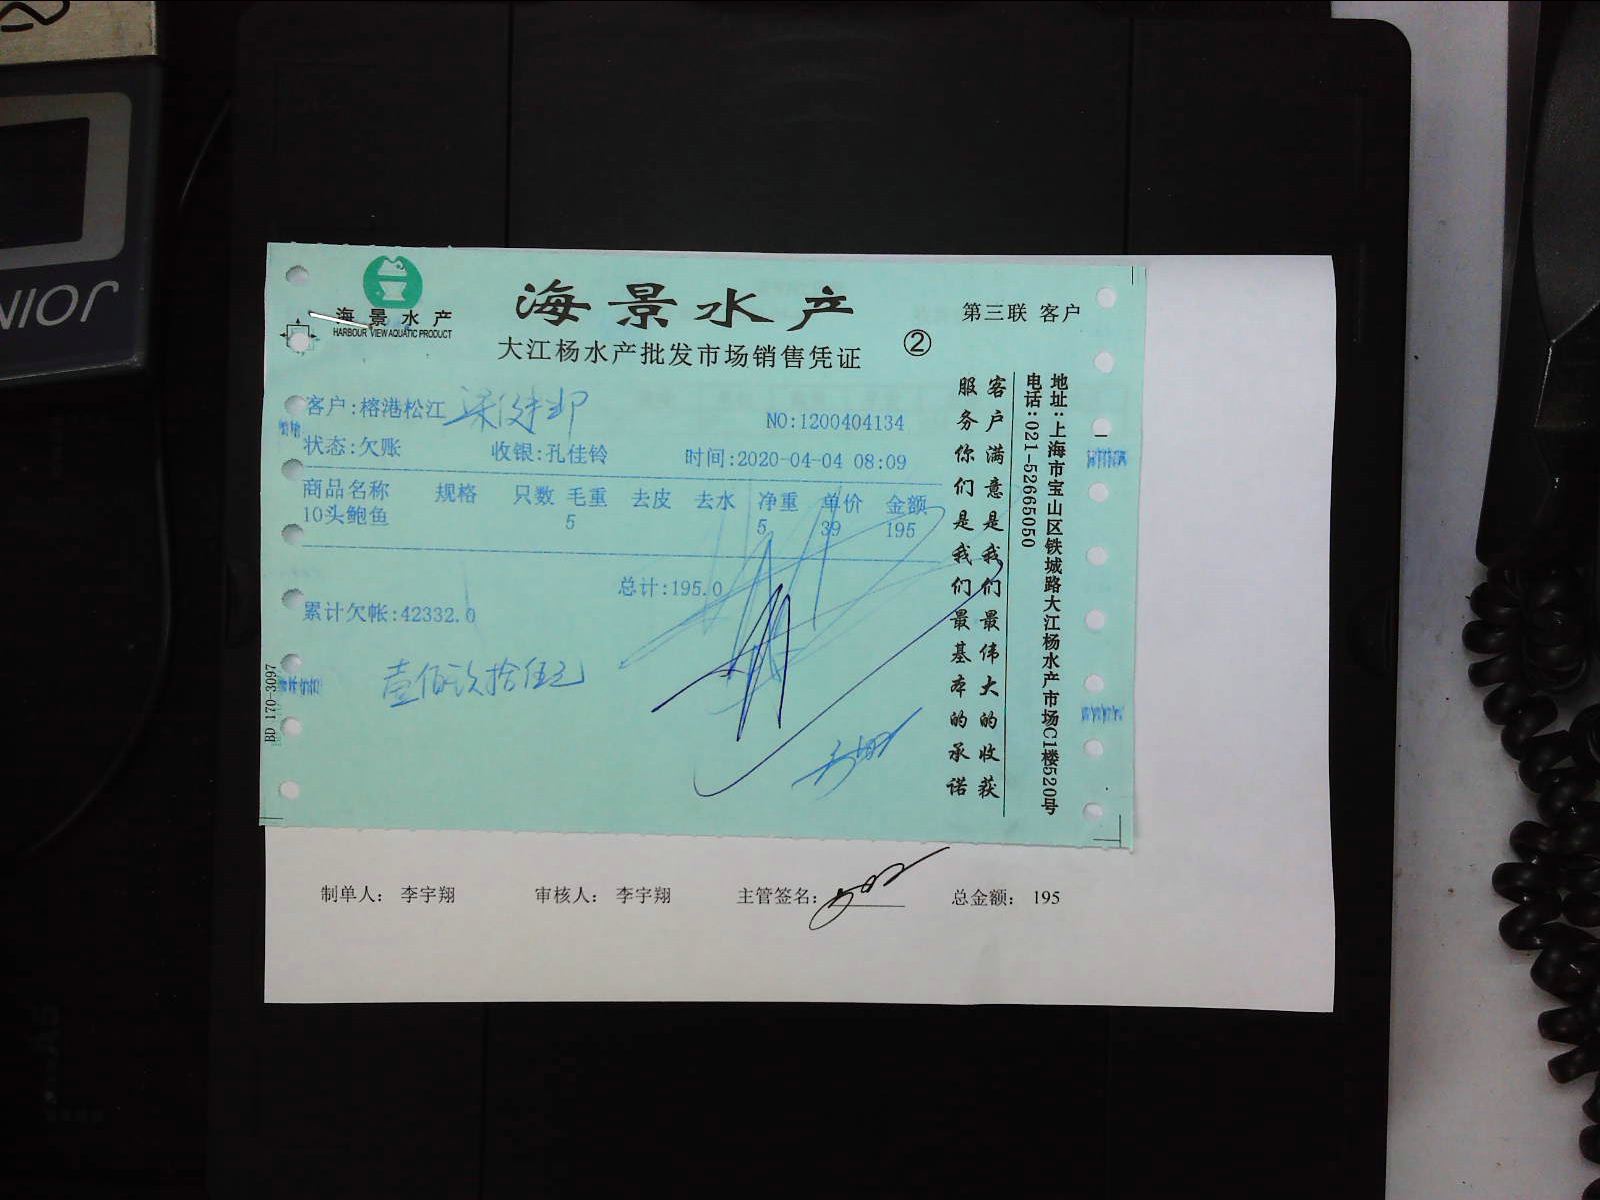 JOIN
海景水产
HARBOUR VIEW AQUATIC PRODUCT
海景水产
大江杨水产批发市场销售凭证
②
第三联 客户
客户:榕港松江
NO:1200404134
状态:欠账 收银:孔佳铃 时间:2020-04-04 08:09
商品名称 规格 只数 毛重 去皮 去水 净重 单价 金额
10头鲍鱼 5 5 39 195
总计:195.0
累计欠帐:42332.0
壹佰玖拾伍元
客户满意是我们最伟大的收获
服务你们是我们最基本的承诺
地址:上海市宝山区铁城路大江杨水产市场C1楼520号
电话:021-52665050
BD 170-3097
制单人: 李宇翔 审核人: 李宇翔 主管签名: 总金额: 195